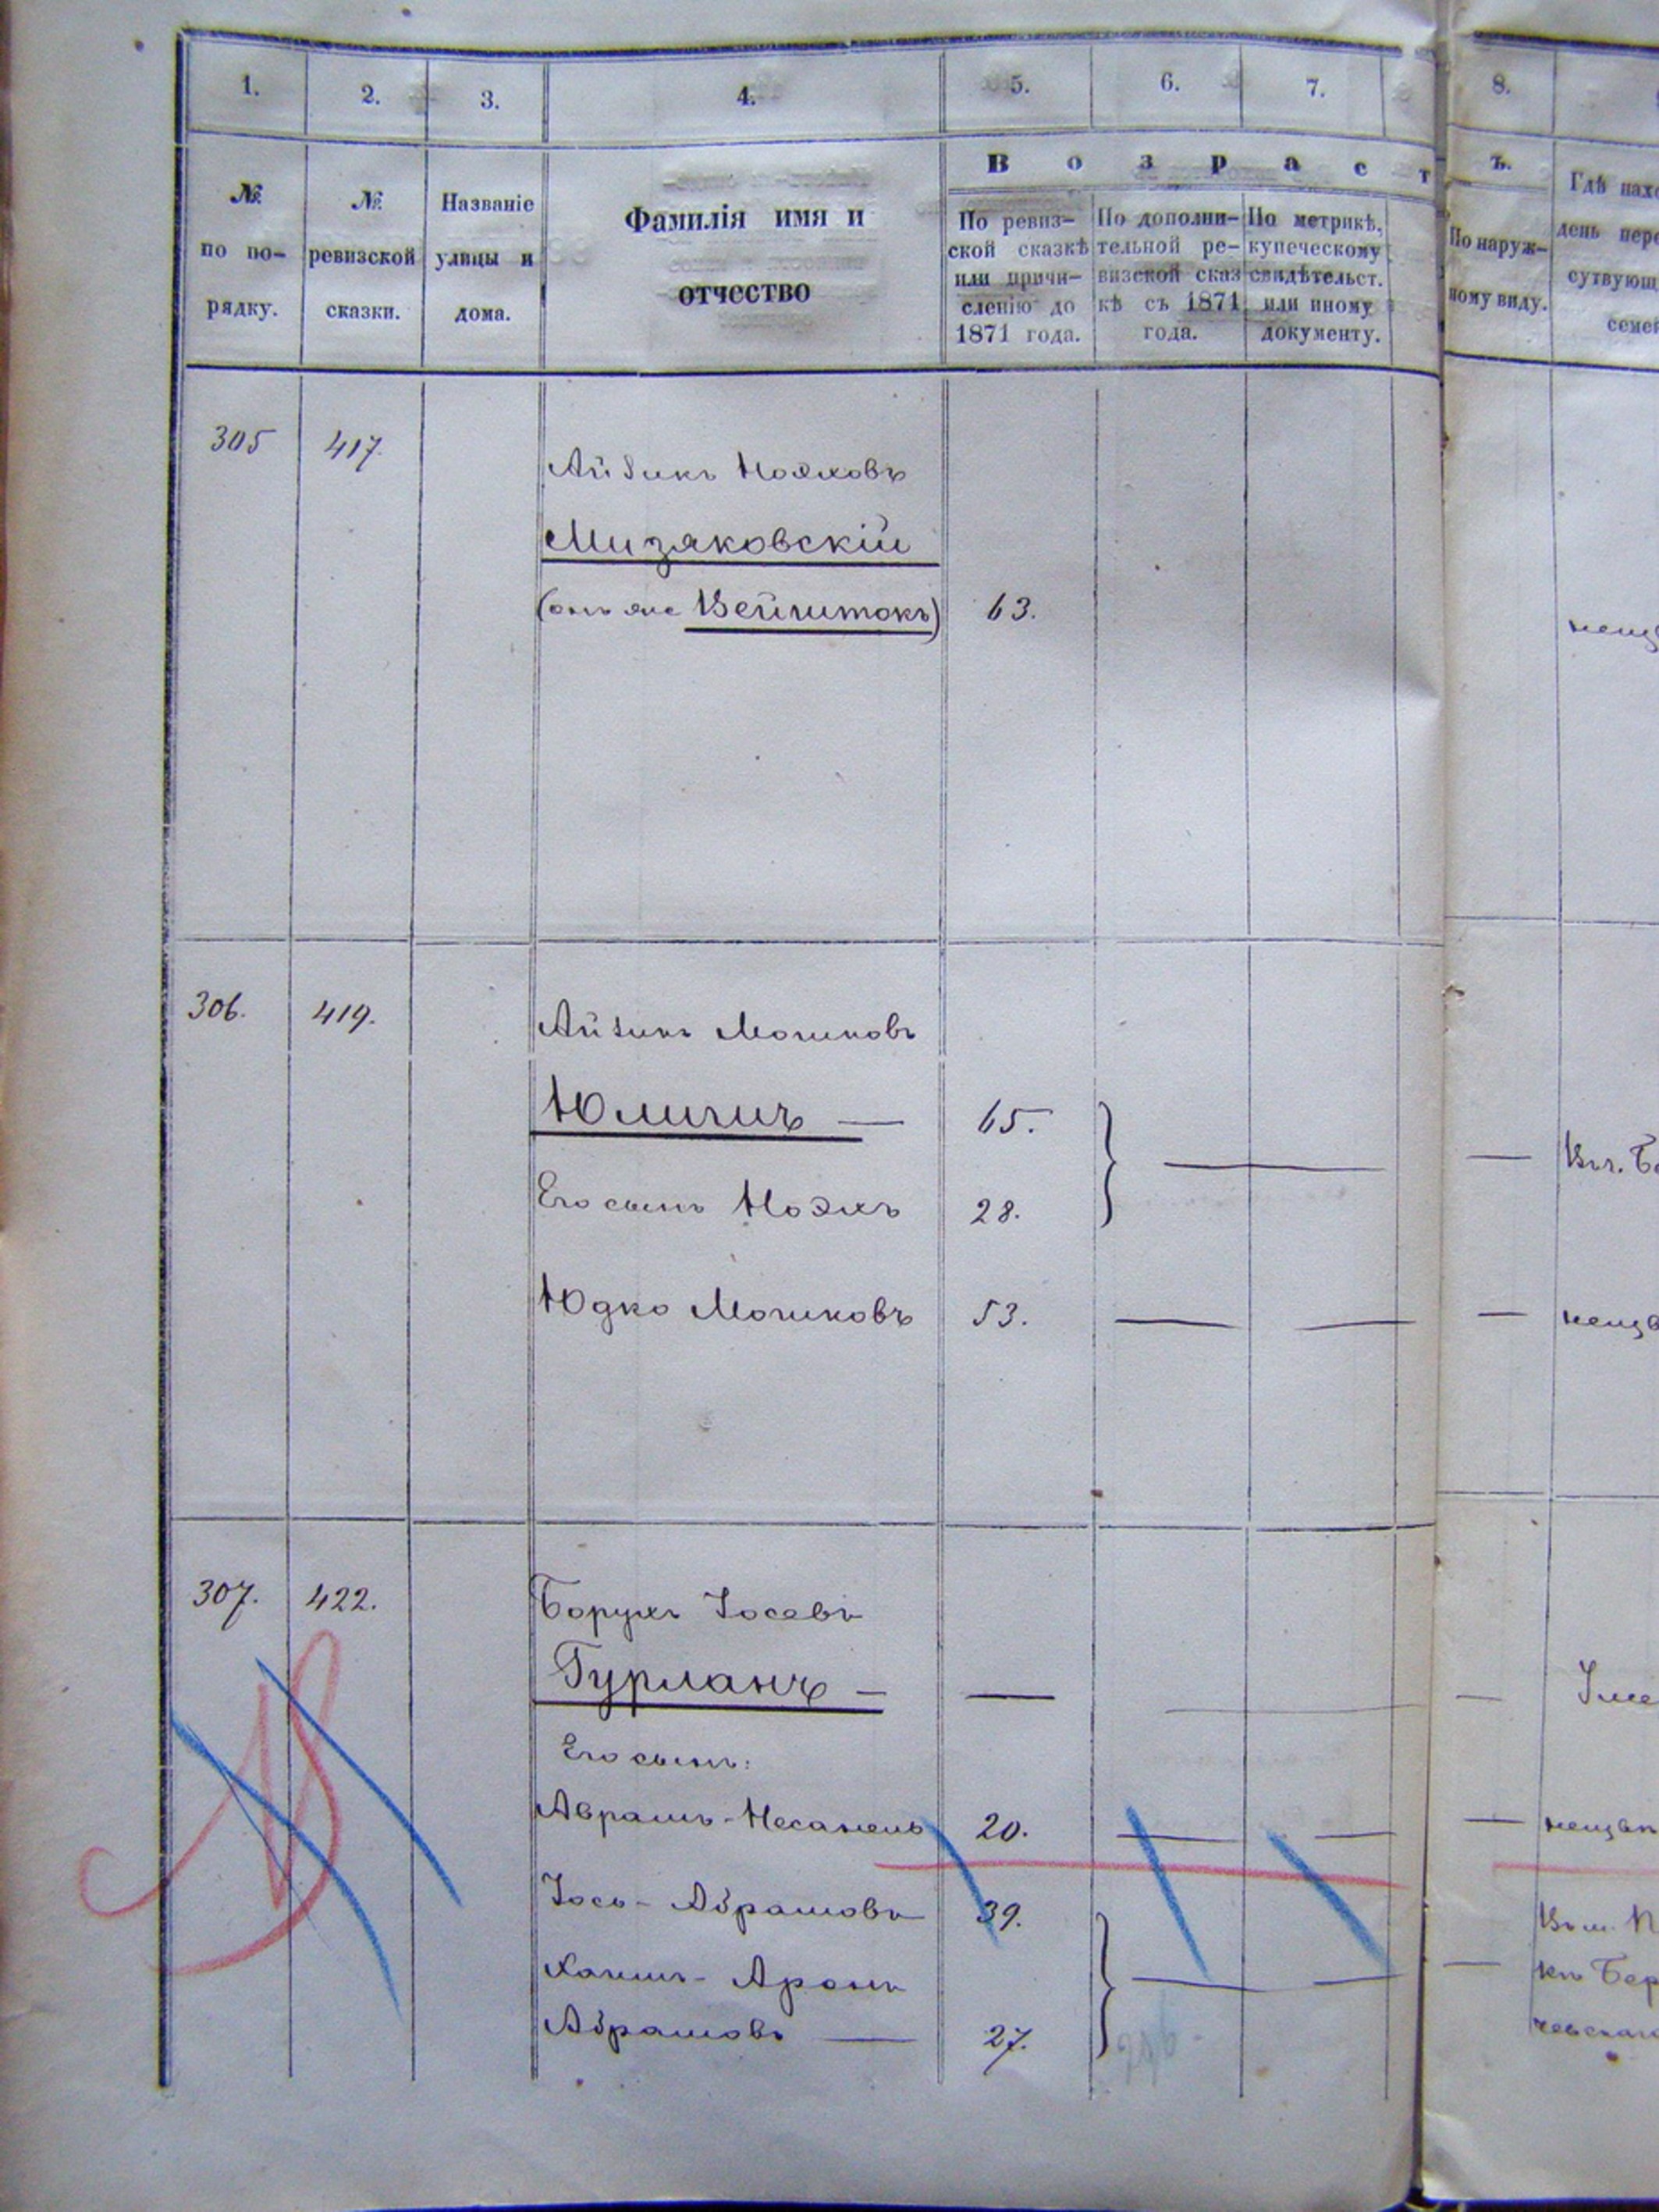 1. 2. 3. 4. 5. 6. 7. 8.
В о з р а с т ъ.
№ по по-рядку.
№ ревизской сказки.
Названіе улицы и дома.
Фамилія имя и отчество
По ревиз-
ской сказкѣ
или причи-
сленію до
1871 года.
По дополни-
тельной ре-
визской сказ
кѣ съ 1871
года.
По метрикѣ,
купеческому
свидѣтельст.
или иному
документу.
По наруж-
ному виду.
Гдѣ
день
305 417. Айзикъ Нояховъ
Мизяковскій
(онъ же Вейнштокъ) 63.
306. 419. Айзикъ Мошковъ
Юлишъ — 65.
Его сынъ Ноэхъ 28.
Юдко Мошковъ 53. — — —
307. 422. Борухъ Іосевъ
Гурланъ — — — —
Его сынъ:
Аврамъ-Несанель 20. — — —
Іось-Абрамовъ 39.
Хаимъ-Аронъ — — —
Абрамовъ — 27.